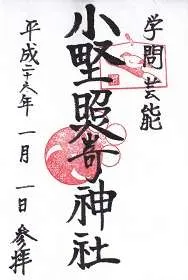 学問芸能
小野照嵜神社
平成二十六年 一月 一日 参拝